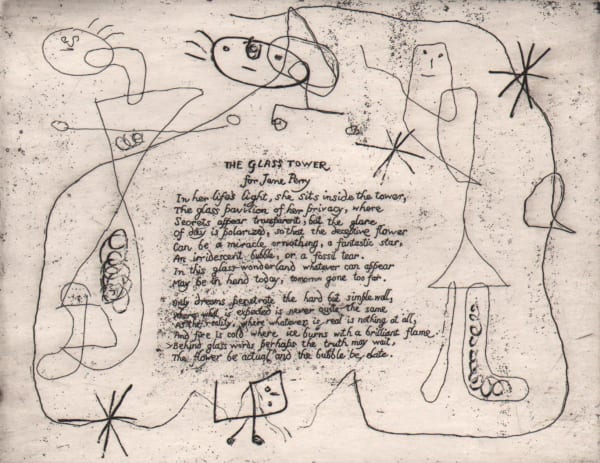 THE GLASS TOWER
for Jane Perry
In her life's light, she sits inside the tower,
The glass pavilion of her privacy, where
Secrets appear transparent, but the glare
Of day is polarized, so that the deceptive flower
Can be a miracle or nothing, a fantastic star,
An irridescent bubble, or a fossil tear.
In this glass wonderland whatever can appear
May be in hand today, tomorrow gone too far.
Only dreams penetrate the hard but simple wall,
Where what is expected is never quite the same
As the reality, where whatever is real is nothing at all,
And fire is cold where ice burns with a brilliant flame
Behind glass words perhaps the truth may wait,
The flower be actual and the bubble be